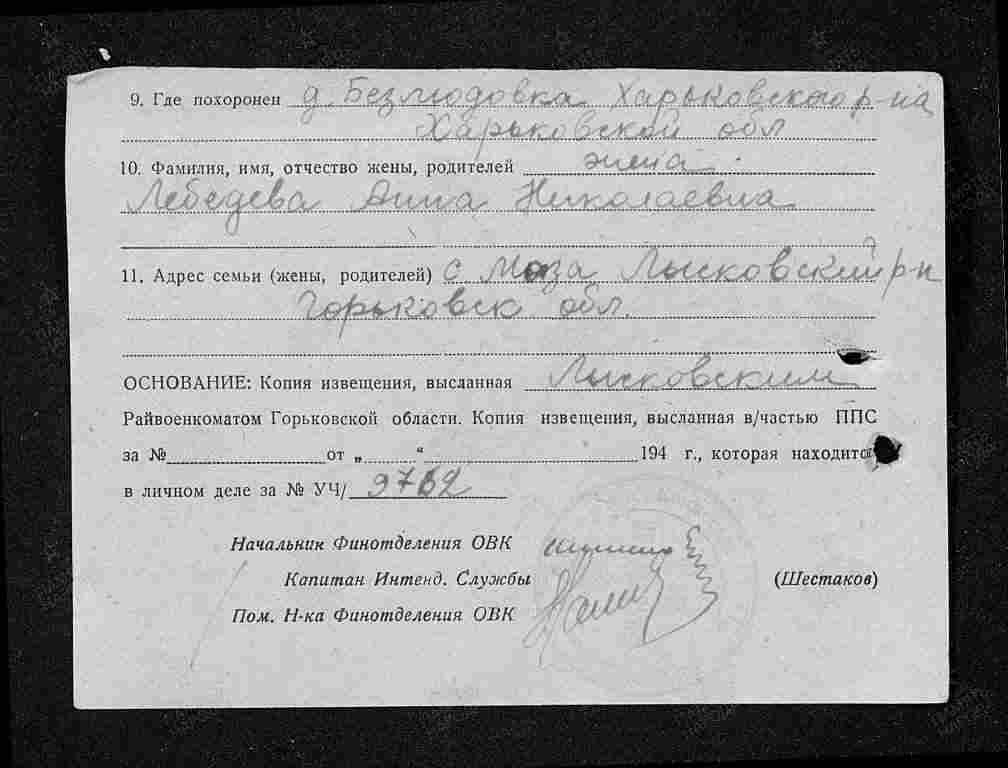 9. Где похоронен д. Безлюдовка Харьковского р-на
Харьковской обл
10. Фамилия, имя, отчество жены, родителей жена
Лебедева Анна Николаевна
11. Адрес семьи (жены, родителей) с Моза Лысковский р-н
Горьковск обл.
ОСНОВАНИЕ: Копия извещения, высланная Лысковским
Райвоенкоматом Горьковской области. Копия извещения, высланная в/частью ППС
за № от „ “ 194 г., которая находится
в личном деле за № УЧ/ 9762
Начальник Финотделения ОВК
Капитан Интенд. Службы (Шестаков)
Пом. Н-ка Финотделения ОВК